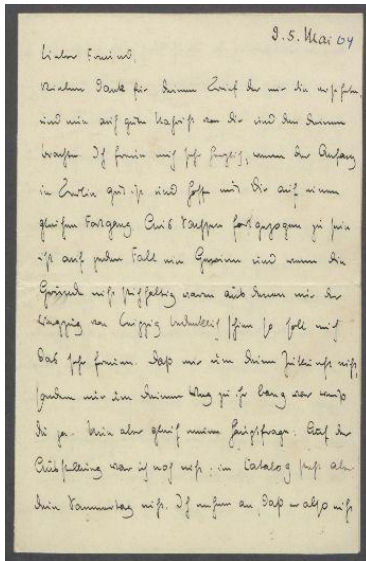 2. 5. Mai 04
Lieber Freund,
Vielen Dank für Deinen Brief der mir die ersehnte
und nun auch gute Nachricht von Dir und den Deinen
brachte. Ich freue mich sehr herzlich, wenn der Anfang
in Berlin gut ist und hoffe mit Dir auf einen
gleichen Fortgang. Aus Sachsen fortgezogen zu sein
ist auf jeden Fall ein Gewinn und wenn die
Gründe nicht stichhaltig waren aus denen mir der
Wegzug von Leipzig bedenklich schien so soll mich
das sehr freuen. Daß mir um Deine Zukunft nicht,
sondern nur um Deinen Weg zu ihr bang war weißt
Du ja. Nun aber gleich meine Hauptfrage: Auf der
Ausstellung war ich noch nicht; im Catalog steht aber
Dein Sommertag nicht. Ich nehme an, daß er also nicht